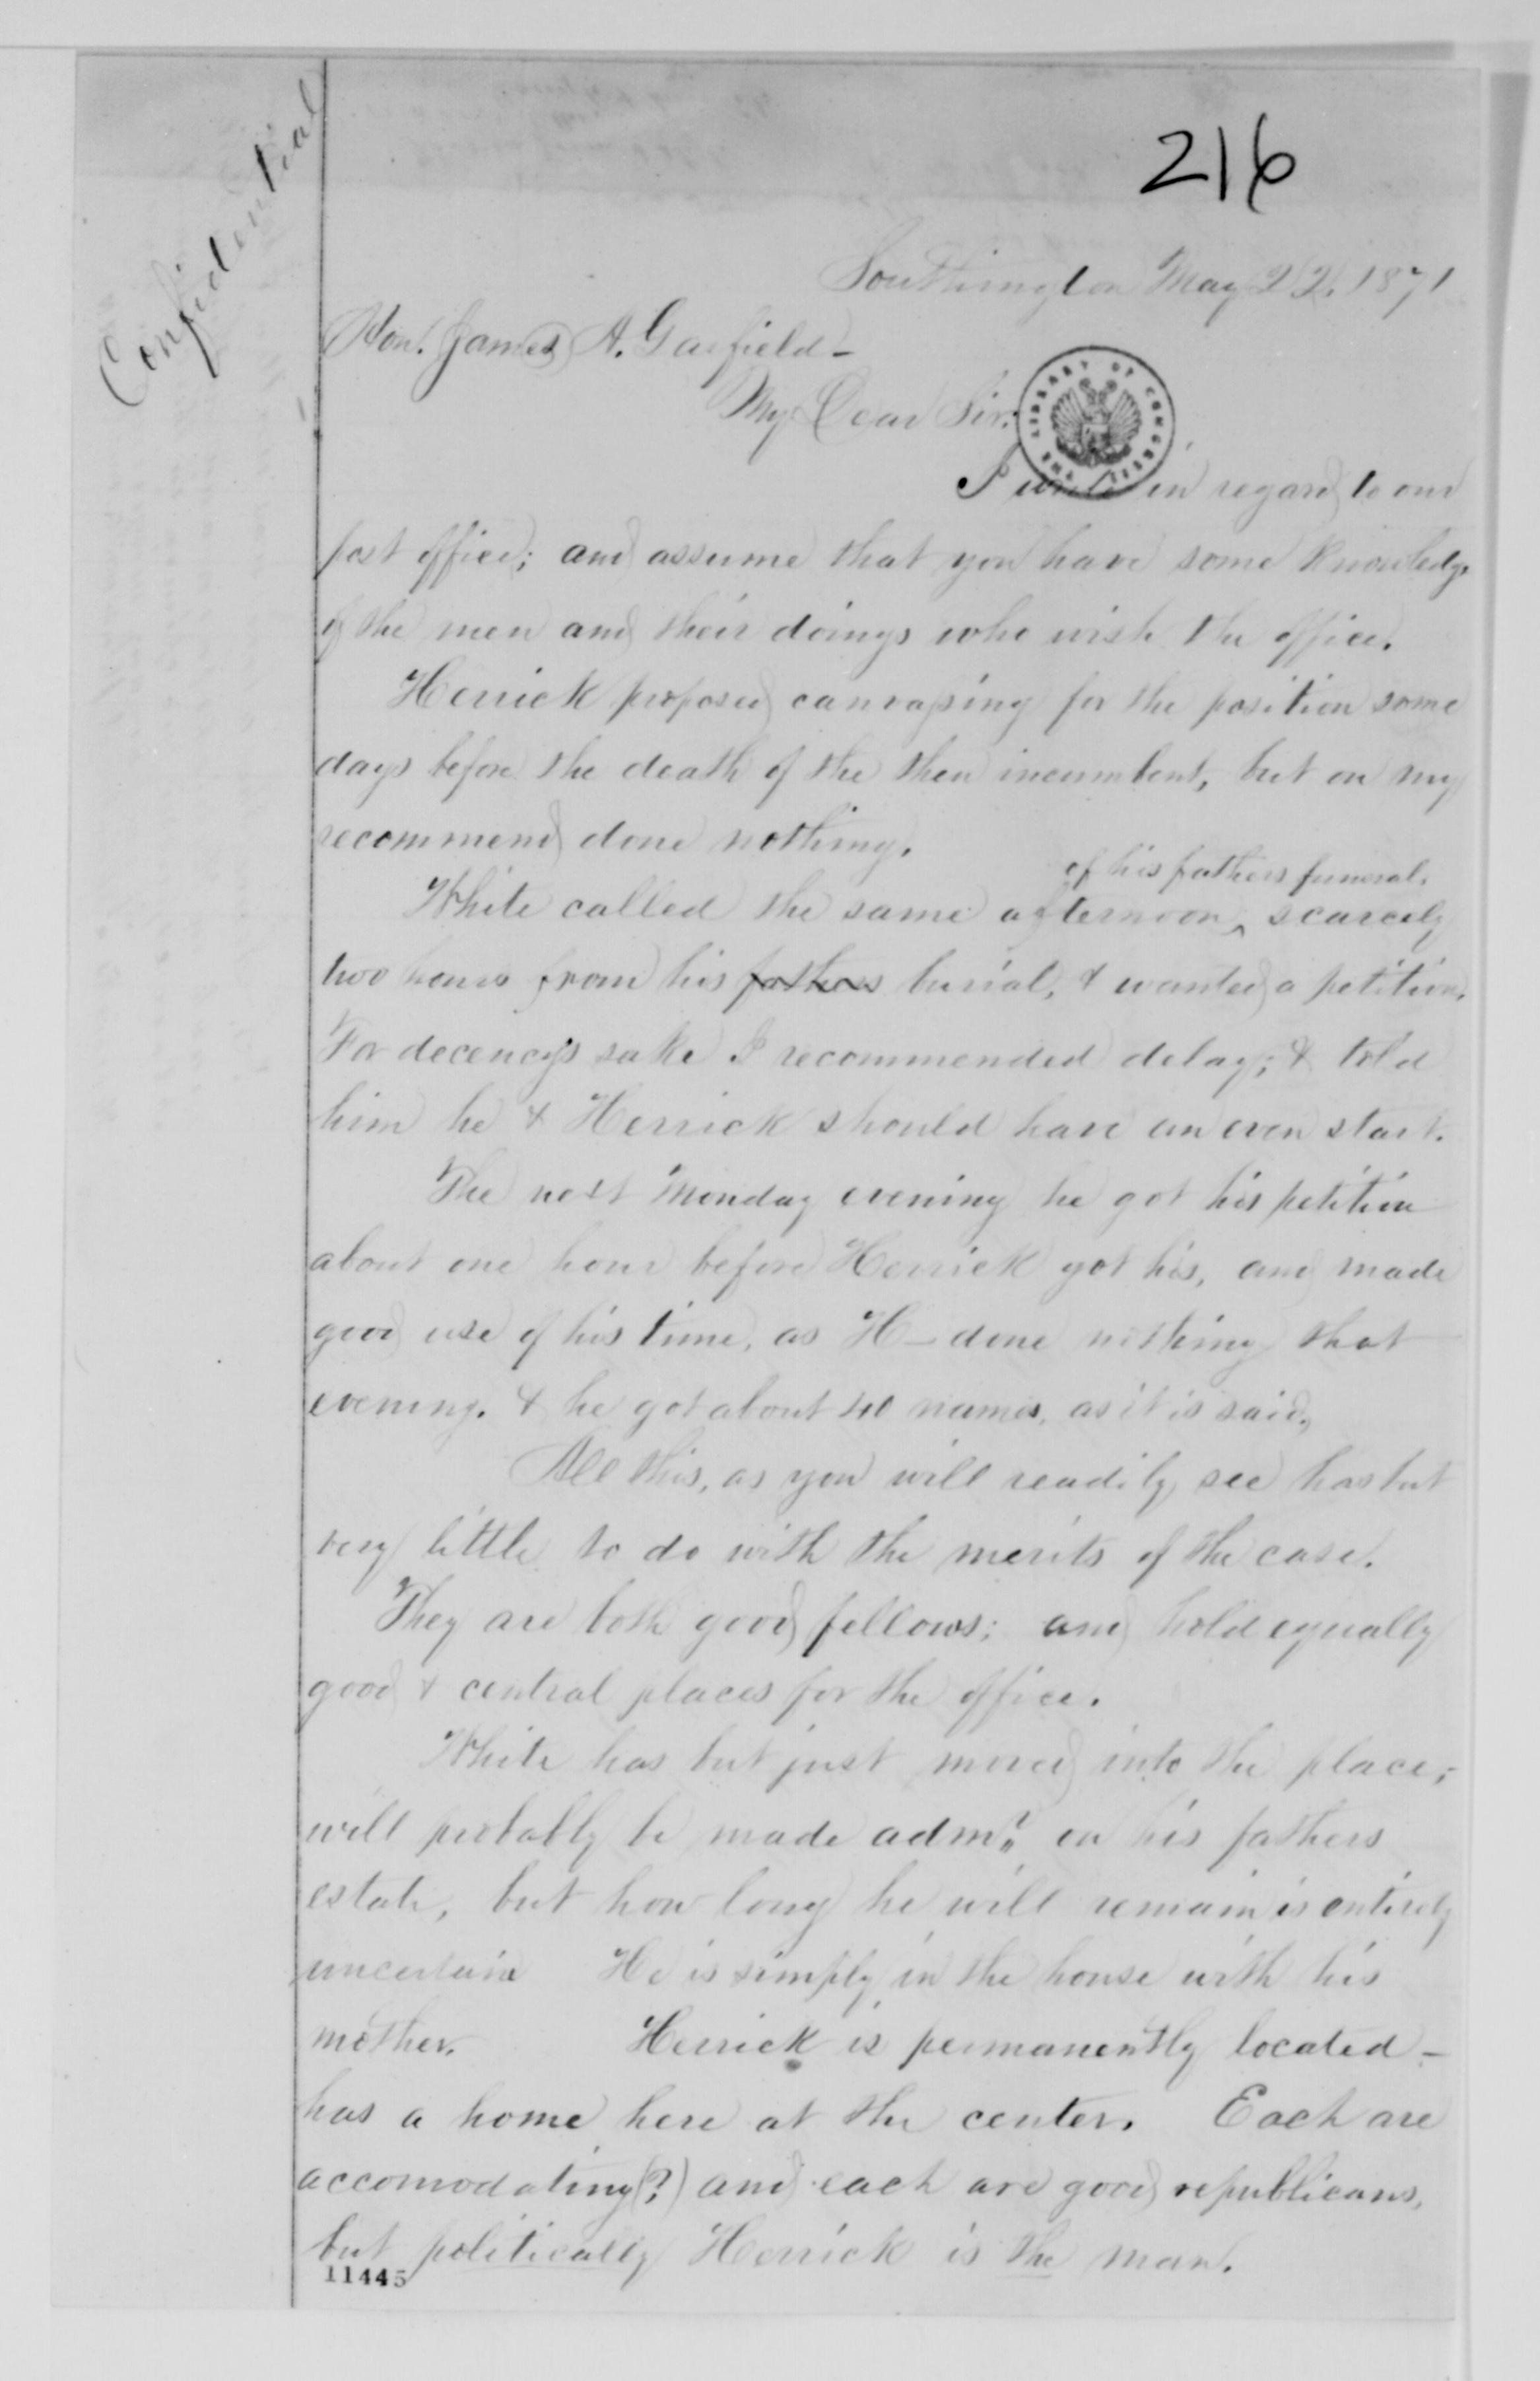 Confidential
216
Southington May 22, 1871
Hon. James A. Garfield-
My Dear Sir:
THE LIBRARY OF CONGRESS
I write in regard to our
post office; and assume that you have some knowledge
of the men and their doings who wish the office.
Herrick proposed canvassing for the position some
days before the death of the then incumbent, but on my
recommend done nothing.
of his fathers funeral,
White called the same afternoon ^ scarcely
two hours from his fathers burial, & wanted a petition.
For decency's sake I recommended delay; & told
him he & Herrick should have an even start.
The next Monday evening he got his petition
about one hour before Herrick got his, and made
good use of his time, as H- done nothing that
evening. & he got about 40 names, as it is said.
All this, as you will readily see has but
very little to do with the merits of the case.
They are both good fellows; and hold equally
good & central places for the office.
White has but just moved into the place;
will probably be made admr. on his fathers
estate, but how long he will remain is entirely
uncertain He is simply in the house with his
mother. Herrick is permanently located -
has a home here at the center. Each are
accomodating(?) and each are good republicans,
but politically Herrick is the man.
11445